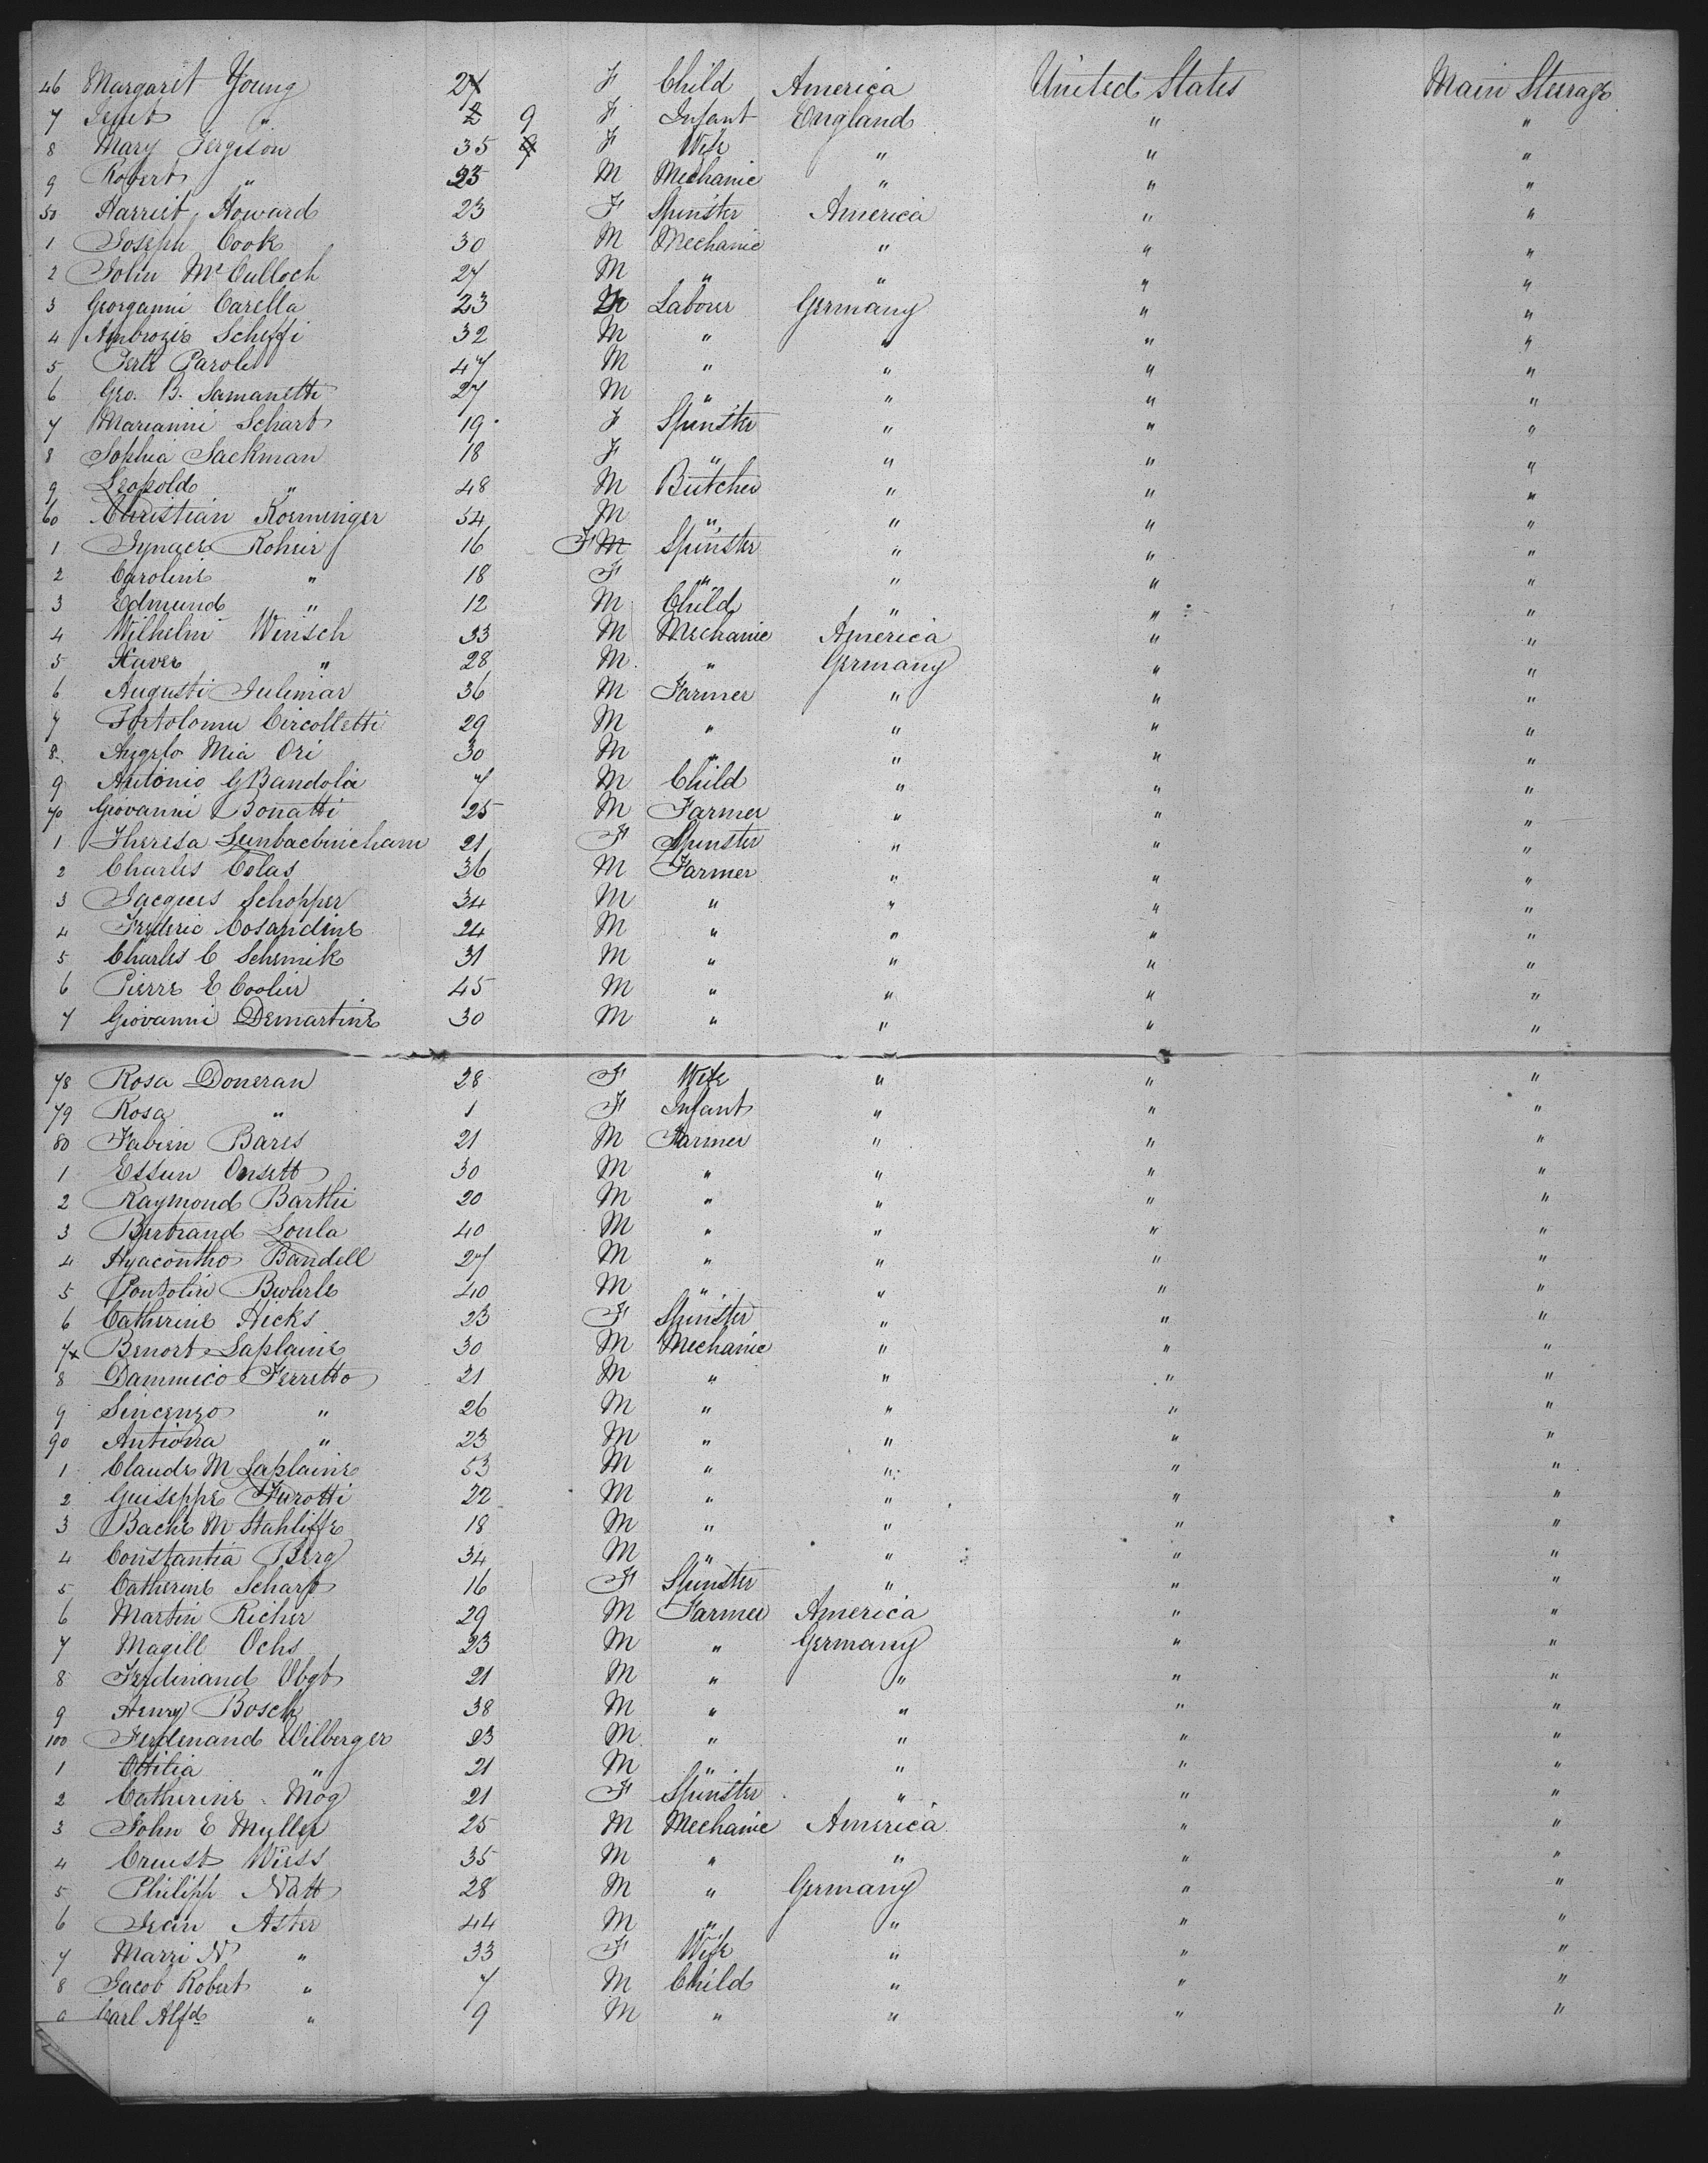 46 Margaret Young 2 F Child America United States Main Steerage
7 Jenet " 9 F Infant England " "
8 Mary Fergison 35 F Wife " " "
9 Robert " 35 M Mechanic " " "
50 Harriet Howard 23 F Spinster America " "
1 Joseph Cook 30 M Mechanic " " "
2 John McCulloch 27 M " " " "
3 Georganni Carella 23 M Labourer Germany " "
4 Ambrozie Scheffi 32 M " " " "
5 Parole 47 M " " " "
6 Geo. B. Samanetti 27 M " " " "
7 Marianni Schart 19 F Spinster " " "
8 Sophia Sackman 18 F " " " "
9 Leopold " 48 M Butcher " " "
60 Christian Koeminger 54 M " " " "
1 Ignace Roheir 16 F M Spinster " " "
2 Caroline " 18 F " " " "
3 Edmund " 12 M Child " " "
4 Wilhelm Wirisch 33 M Mechanic America " "
5 Xaver " 28 M " Germany " "
6 Augusti Julimar 36 M Farmer " " "
7 Bortolomu Circolletti 29 M " " " "
8 Angelo Mia Ori 30 M " " " "
9 Antonio G Bandola 7 M Child " " "
70 Giovanni Bonatti 25 M Farmer " " "
1 Theresa 21 F Spinster " " "
2 Charles Colas 36 M Farmer " " "
3 Jacques Schopper 34 M " " " "
4 Frederic Cosandine 24 M " " " "
5 Charles C Schemik 31 M " " " "
6 Pierre E Coolier 45 M " " " "
7 Giovanni Demartine 30 M " " " "
78 Rosa Doneran 28 F Wife " " "
79 Rosa " 1 F Infant " " "
80 Fabien Bares 21 M Farmer " " "
1 Essun Onsett 30 M " " " "
2 Raymond Barthe 20 M " " " "
3 Bertrand Loula 40 M " " " "
4 Hyacontho Bandell 27 M " " " "
5 Pontolin Bwherle 40 M " " " "
6 Catherine Hicks 23 F Spinster " " "
7x Benort Laplaine 30 M Mechanic " " "
8 Dammico Ferretto 21 M " " " "
9 Sincenzo " 26 M " " " "
90 Antiona " 23 M " " " "
1 Claude M Laplaine 53 M " " " "
2 Guiseppe Furotti 22 M " " " "
3 Bache M Stahliffe 18 M " " " "
4 Constantia Berg 34 M " " " "
5 Catherine Scharp 16 F Spinster " " "
6 Martin Richer 29 M Farmer America " "
7 Magill Ochs 23 M " Germany " "
8 Ferdinand Vogt 21 M " " " "
9 Henry Bosch 38 M " " " "
100 Ferdenand Wilberger 23 M " " " "
1 Ottilia " 21 M " " " "
2 Catherine Mog 21 F Spinster " " "
3 John E Muller 25 M Mechanic America " "
4 Ernest Wiess 35 M " " " "
5 Philipp Natt 28 M " Germany " "
6 Jean Aster 44 M " " " "
7 Marri N " 33 F Wife " " "
8 Jacob Robert " 7 M Child " " "
9 Carl Alfd " 9 M " " " "